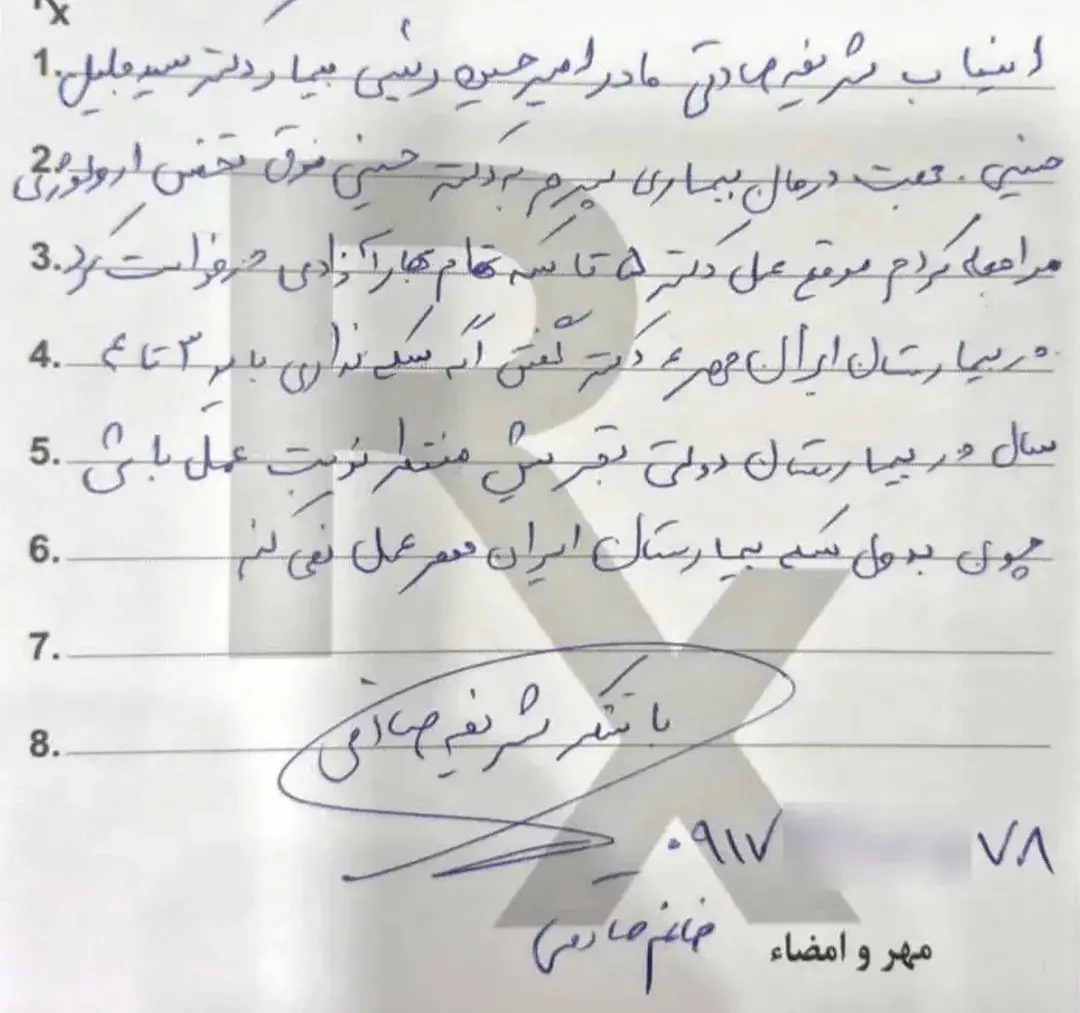 Rx
1. اینجانب شریفه صادقی مادر امیرحسین رئیسی بیمار دکتر سید جلیل
2. حسینی. جهت درمان بیماری پسرم به دکتر حسینی فوق تخصص ارولوژی
3. مراجعه کردم موقع عمل دکتر ۵ تا سکه تمام بهار آزادی درخواست کرد
4. در بیمارستان ایران مهر، دکتر گفتن اگه سکه نداری باید ۳ تا ۴
5. سال در بیمارستان دولتی تجریش منتظر نوبت عمل باشی
6. چون بدون سکه بیمارستان ایران مهر عمل نمی کنم
7.
8. با تشکر شریفه صادقی
۰۹۱۷ ۷۸
خانم صادقی
مهر و امضاء
Rx